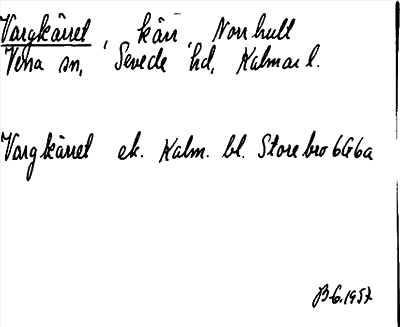 Vargkärret, kärr, Norrhult
Vena sn, Sevede hd, Kalmar l.
Vargkärret ek. Kalm. bl. Storebro 6G6a
B G. 1957